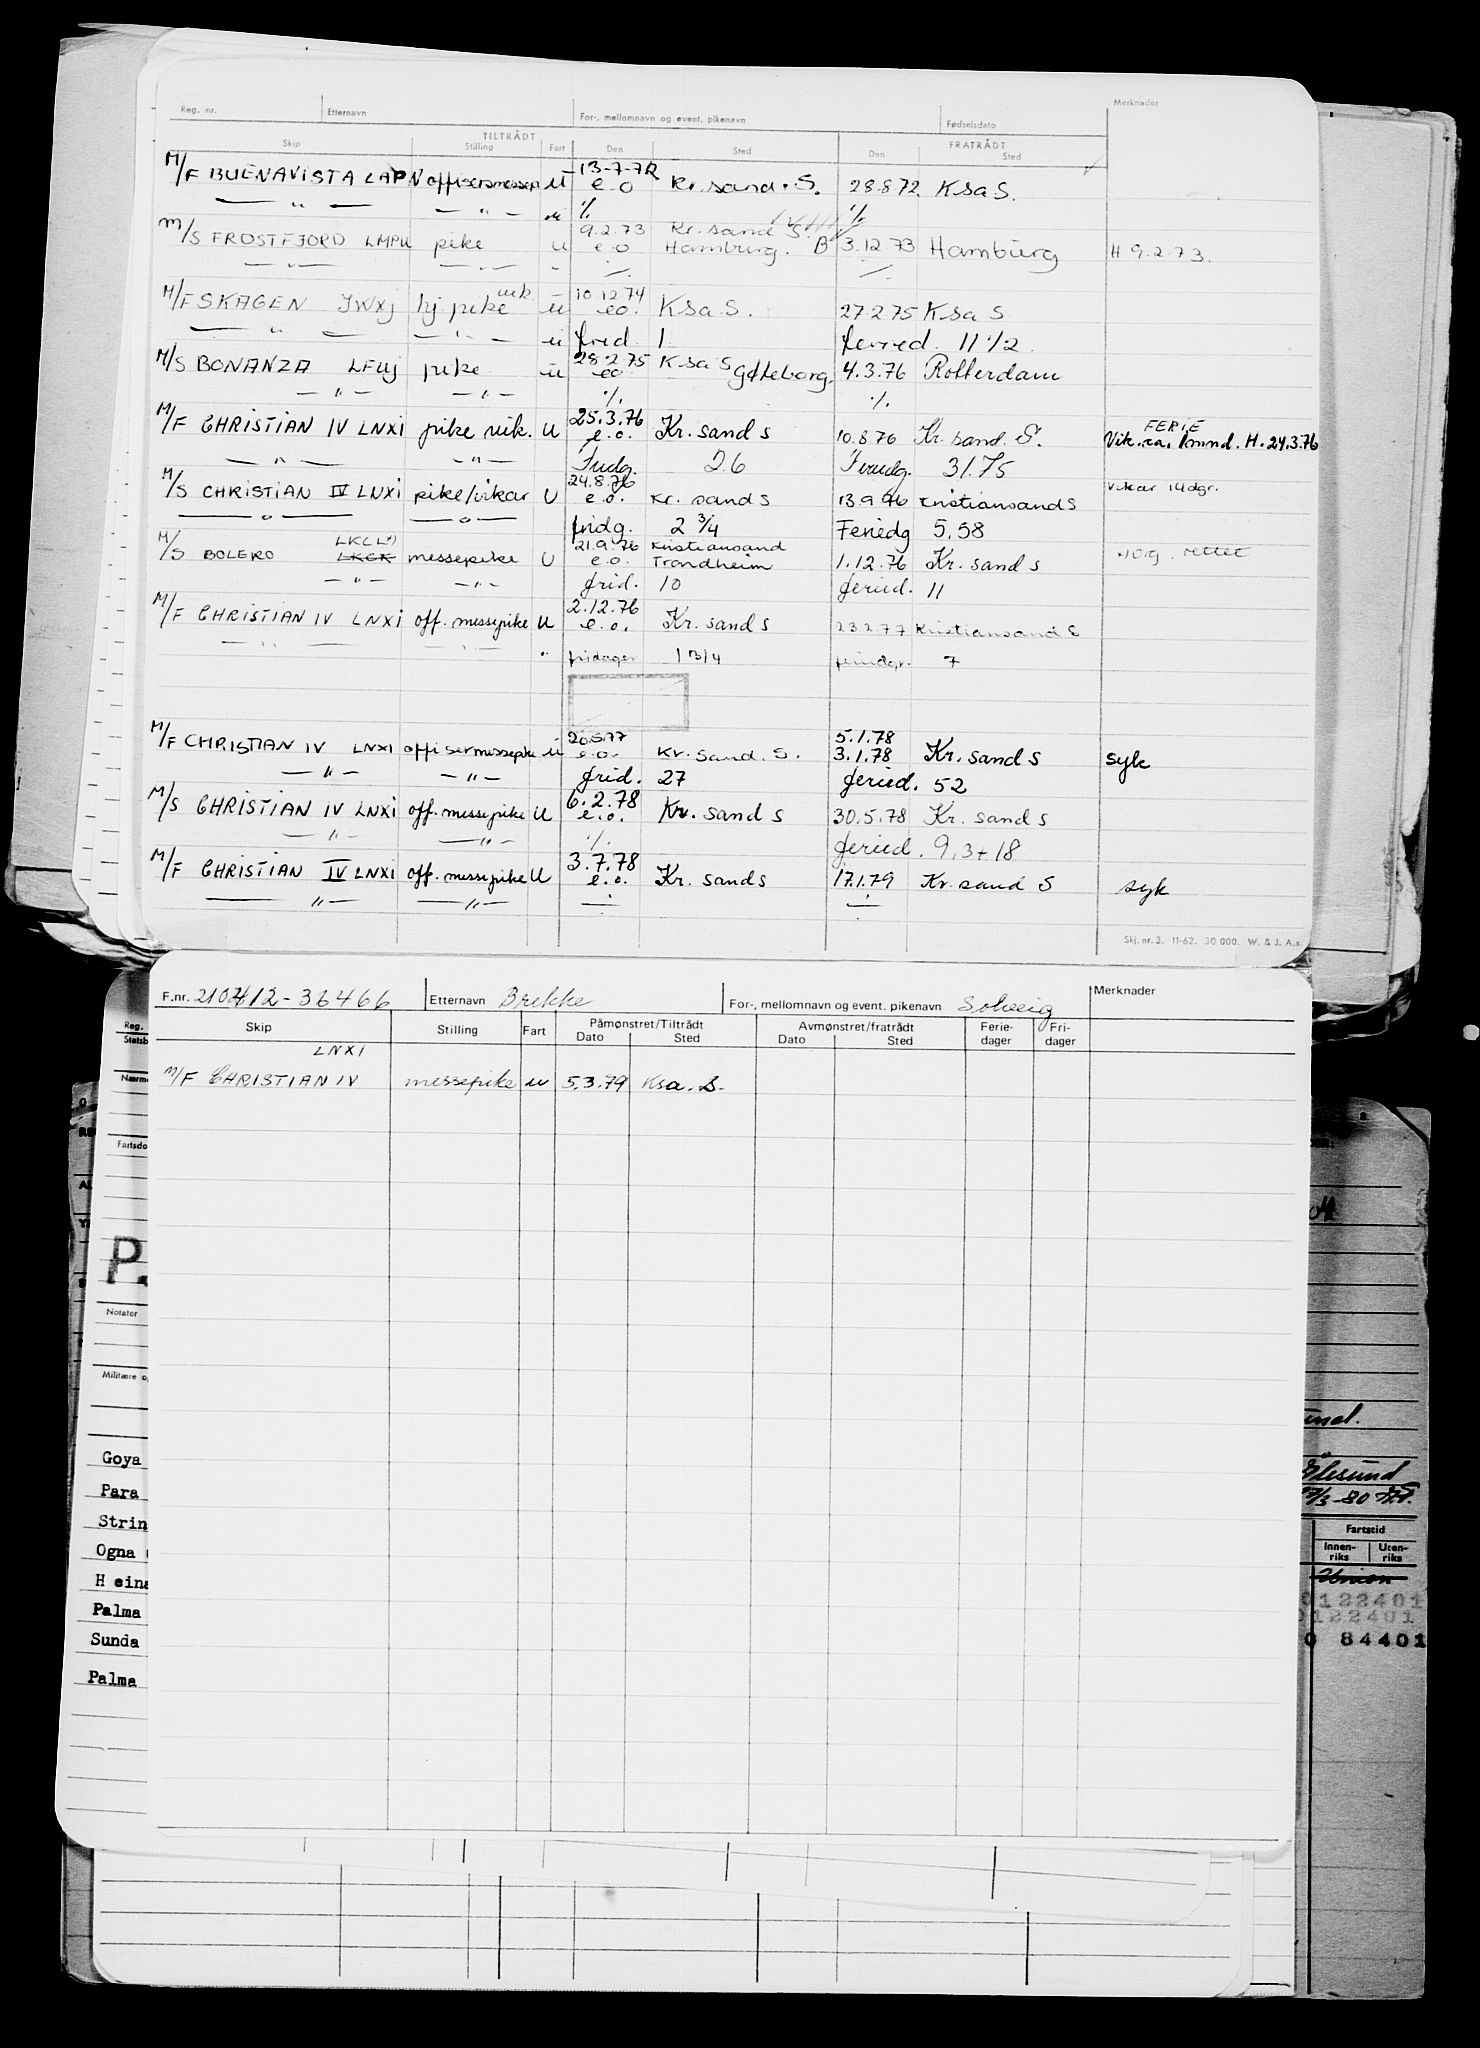 Reg. nr. Etternavn For-, mellomnavn og event. pikenavn Fødselsdato Merknader
TILTRÅDT FRATRÅDT
Skip Stilling Fart Den Sted Den Sted
13-7-72
M/F BUENAVISTA LAPN offisersmessep U e.o Kr.sand.S. 28.8.72 KsaS.
— " — — " — % %
9.2.73 Kr.sand S.
M/S FROSTFJORD LMPU pike U e.o Hamburg. B 3.12.73 Hamburg H 9.2.73.
— " — — " — "
10.12.74
M/F SKAGEN JWXJ hj.pike vik. U eo. Ksa S. 27.2.75 Ksa S
— " — — " — U frid. 1 feried. 11 1/2
28.2.75 Ksa S
M/S BONANZA LFUJ pike U eo. Gøteborg. 4.3.76 Rotterdam
— " — — " — % %
25.3.76 FERIE
M/F CHRISTIAN IV LNXI pike vik. U e.o. Kr.sand s 10.8.76 Kr.sand.S. Vik. ca. 1 mnd. H.24.3.76
— " — — " — Fridg. 26 Feriedg. 31.75
24.8.76
M/S CHRISTIAN IV LNXI pike/vikar U e.o. Kr. sand s 13.9.76 Kristiansand S Vikar 14dgr.
— " — — " — fridg. 2 3/4 Feriedg 5.58
LKCL 21.9.76 Kristiansand
M/S BOLERO LKCK messepike U e.o. Trondheim 1.12.76 Kr. sand s rettet
— " — — " — frid. 10 feried. 11
2.12.76
M/F CHRISTIAN IV LNXI off. messepike U e.o. Kr. sand s 23.2.77 Kristiansand S
— " — — " — " fridager 1 3/4 7
20.5.77 5.1.78
M/F CHRISTIAN IV LNXI offisermessepike U e.o. Kr. sand. S. 3.1.78 Kr. sand s syk
— " — — " — frid. 27 feried. 52
6.2.78
M/S CHRISTIAN IV LNXI off. messepike U e.o. Kr. sand s 30.5.78 Kr. sand s
— " — — " — % feried. 9,3+18
3.7.78
M/F CHRISTIAN IV LNXI off. messepike U e.o. Kr. sand s 17.1.79 Kr. sand S syk
— " — — " —
Skj. nr. 3. 11-62. 30 000. W. & J. A.s.
F.nr. 210412-36466 Etternavn Brekke For-, mellomnavn og event. pikenavn Solveig Merknader
Skip Stilling Fart Påmønstret/Tiltrådt Avmønstret/fratrådt Ferie-dager Fri-dager
Dato Sted Dato Sted
LNXI
M/F CHRISTIAN IV messepike u 5.3.79 Ksa. S.
Reg.
Statsb
Nærme
Fartsdo
P.
Notater
Militære o
Goya
Para
Strin
Ogna
H eina
Palma
Sunda
Palma
Ålesund
Fartstid
Innen-riks Uten-riks
Union
0122401
0122401
0 84401